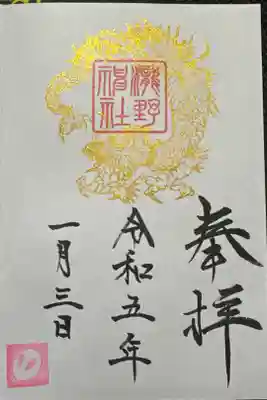 奉拝
瀧野
神社
令和五年
一月三日